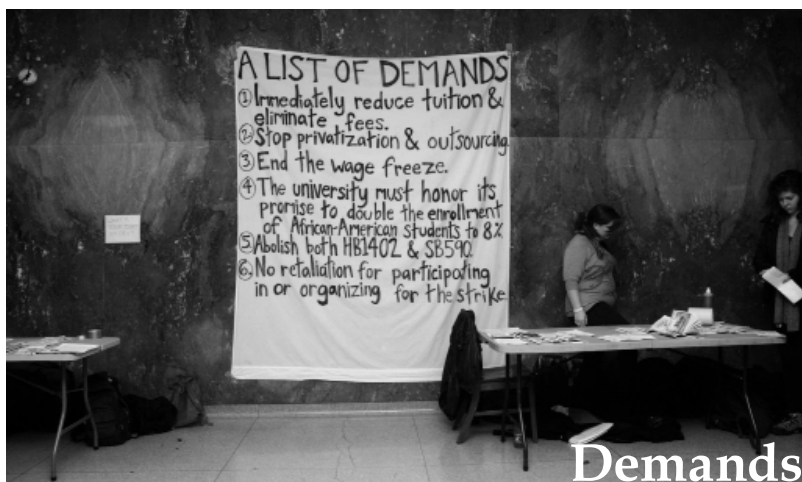 A LIST OF DEMANDS
① Immediately reduce tuition &
eliminate fees.
② Stop privatization & outsourcing.
③ End the wage freeze.
④ The university must honor its
promise to double the enrollment
of African-American students to 8%
⑤ Abolish both HB1402 & SB590.
⑥ No retaliation for participating
in or organizing for the strike.
Demands